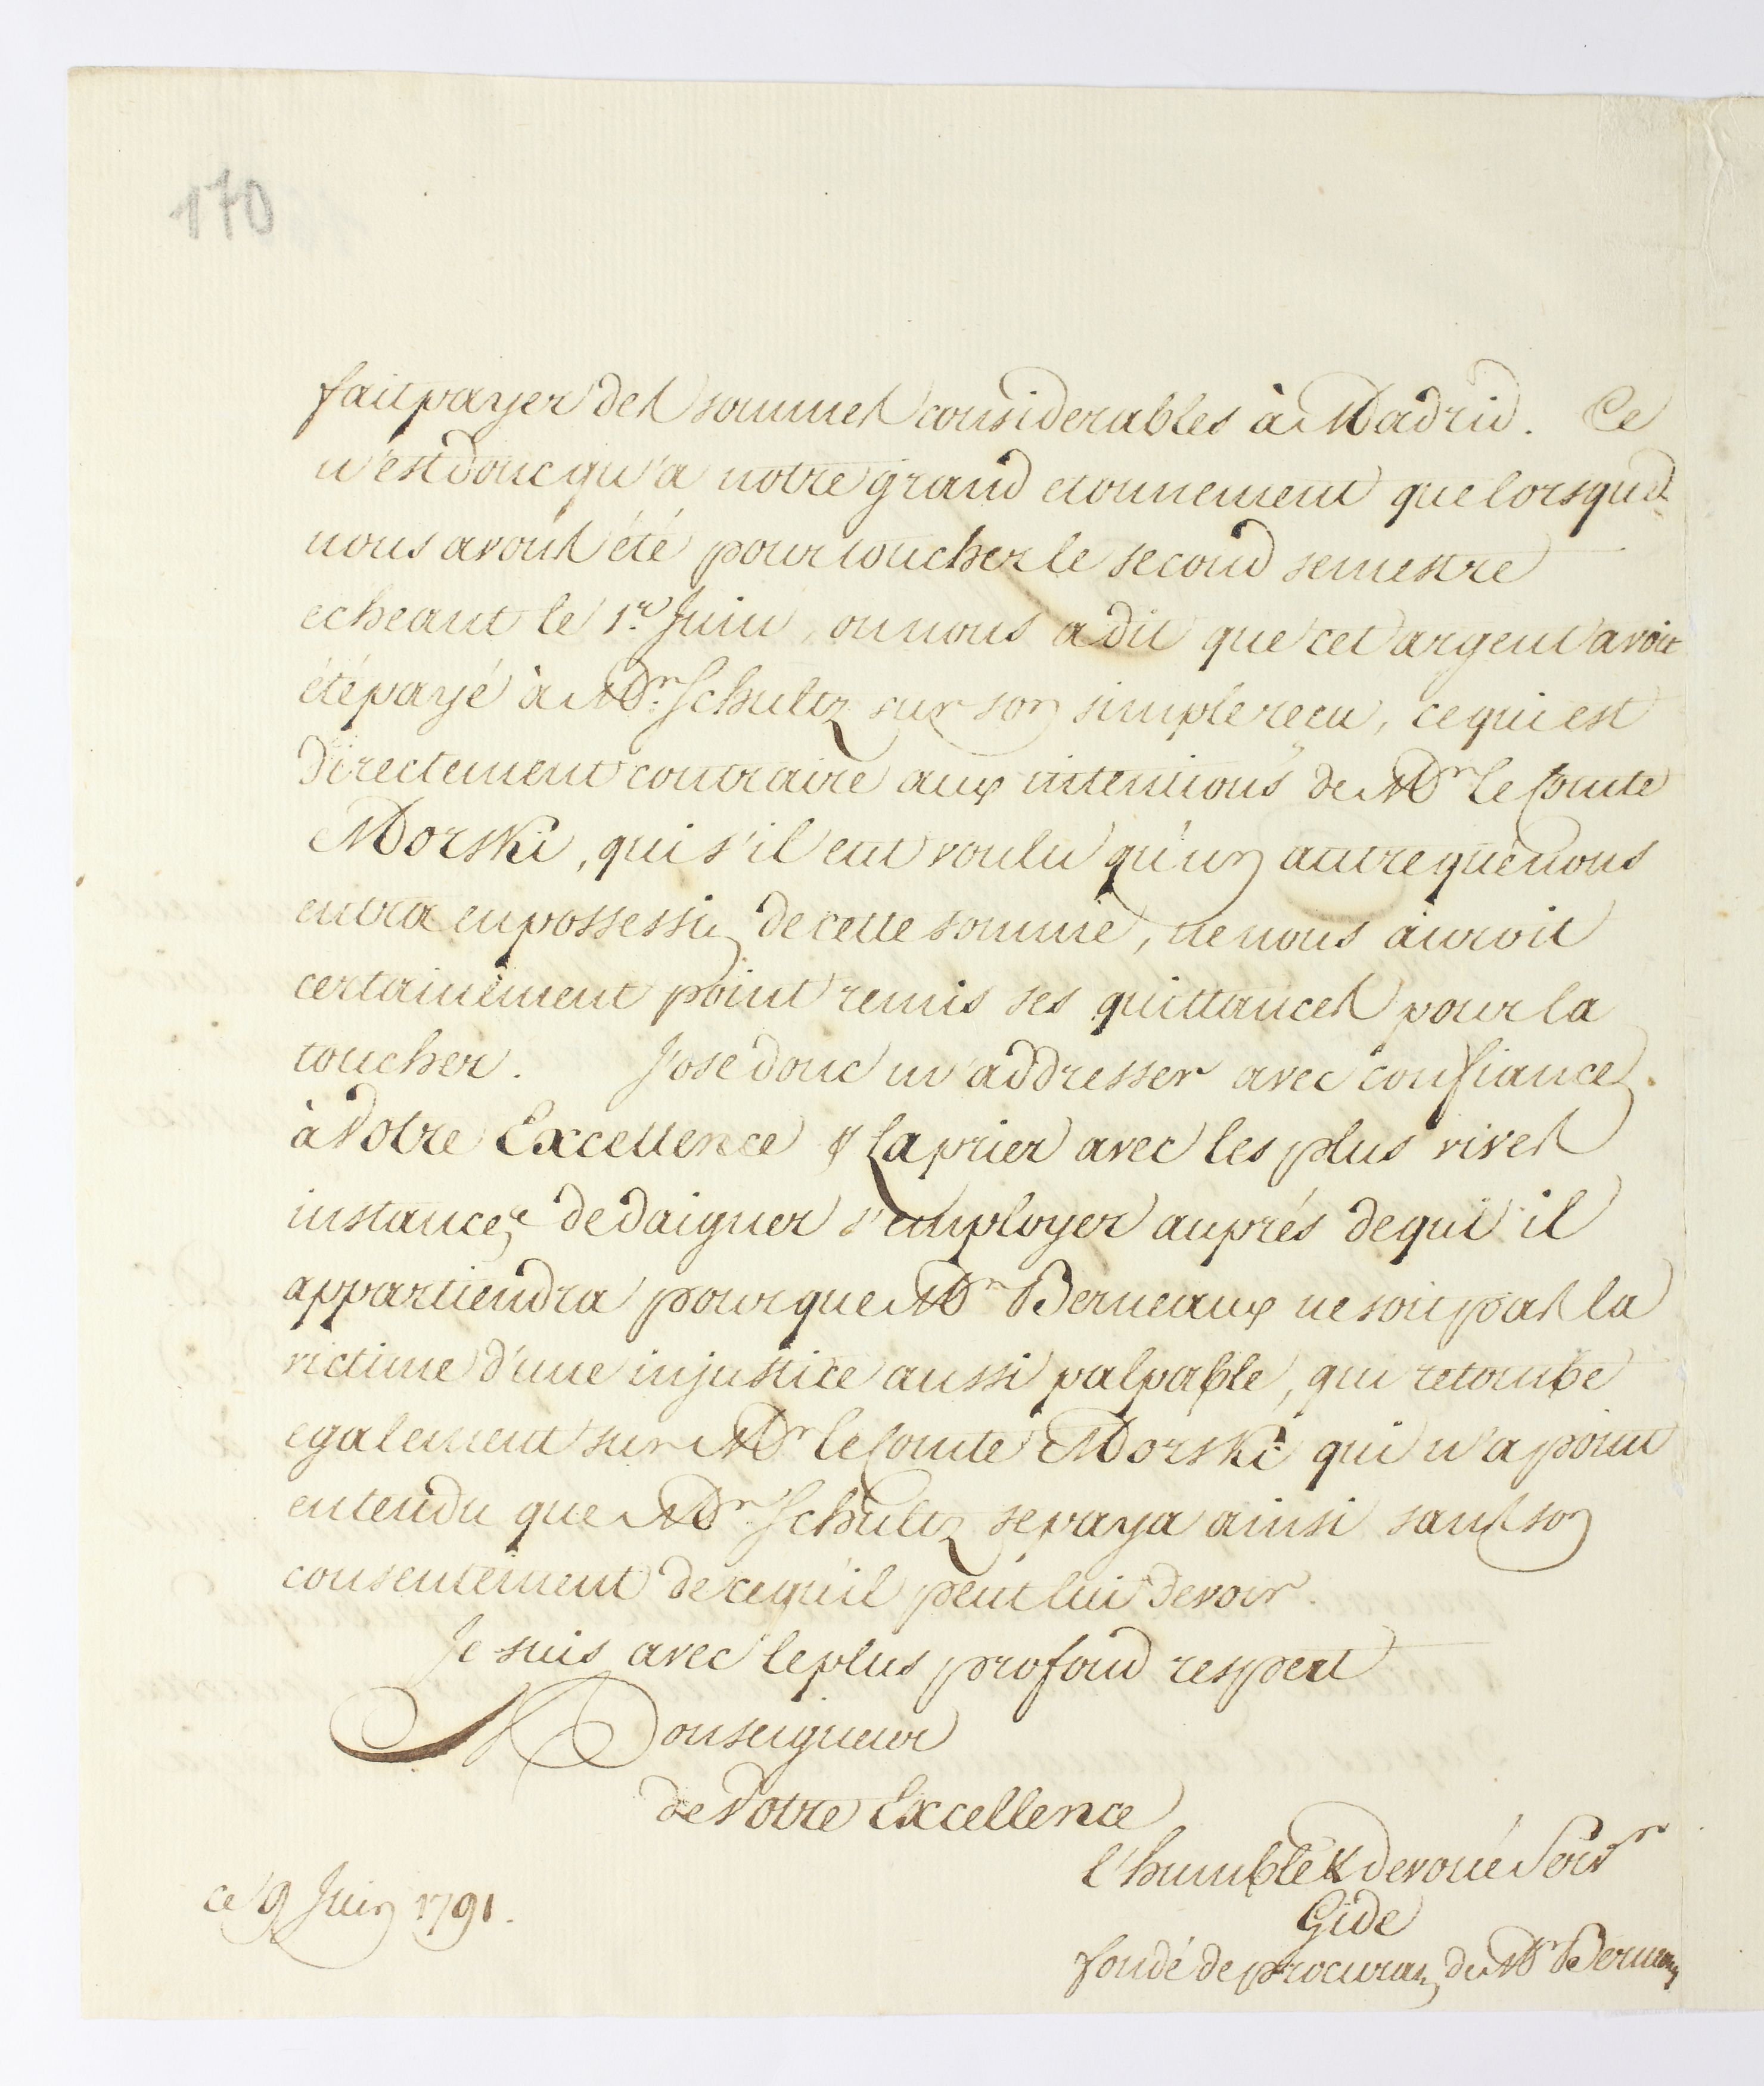 170
fait payer des sommes considerables à Madrid. Ce
n'est donc qu'a notre grand etonnement que lorsque
nous avons été pour toucher le second semestre
echeant le 1.er Juin, on nous a dit que cet argent avoit
été payé à Mr. Schultz sur son simple recu, ce qui est
directement contraire aux intentions de Mr le Comte
Morski, qui s'il eut voulu qu'un autre que nous
entra en possession de cette somme, ne nous auroit
certainement point remis ses quittances pour la
toucher. J'ose donc m'addresser avec confiance
à Votre Excellence & la prier avec les plus vives
instances de daigner s'employer auprés de qui il
appartiendra pour que Mr Berneaux ne soit pas la
victime d'une injustice aussi palpable, qui retombe
egalement sur Mr le Comte Morski qui n'a point
entendu que Mr. Schultz se paya ainsi sans son
consentement de ce qu'il peut lui devoir.
Je suis avec le plus profond respect
Monseigneur
de Votre Excellence
l'humble & devoué Serv
Gide
ce 9 Juin 1791.
fondé de procuran de Mr Berneaux